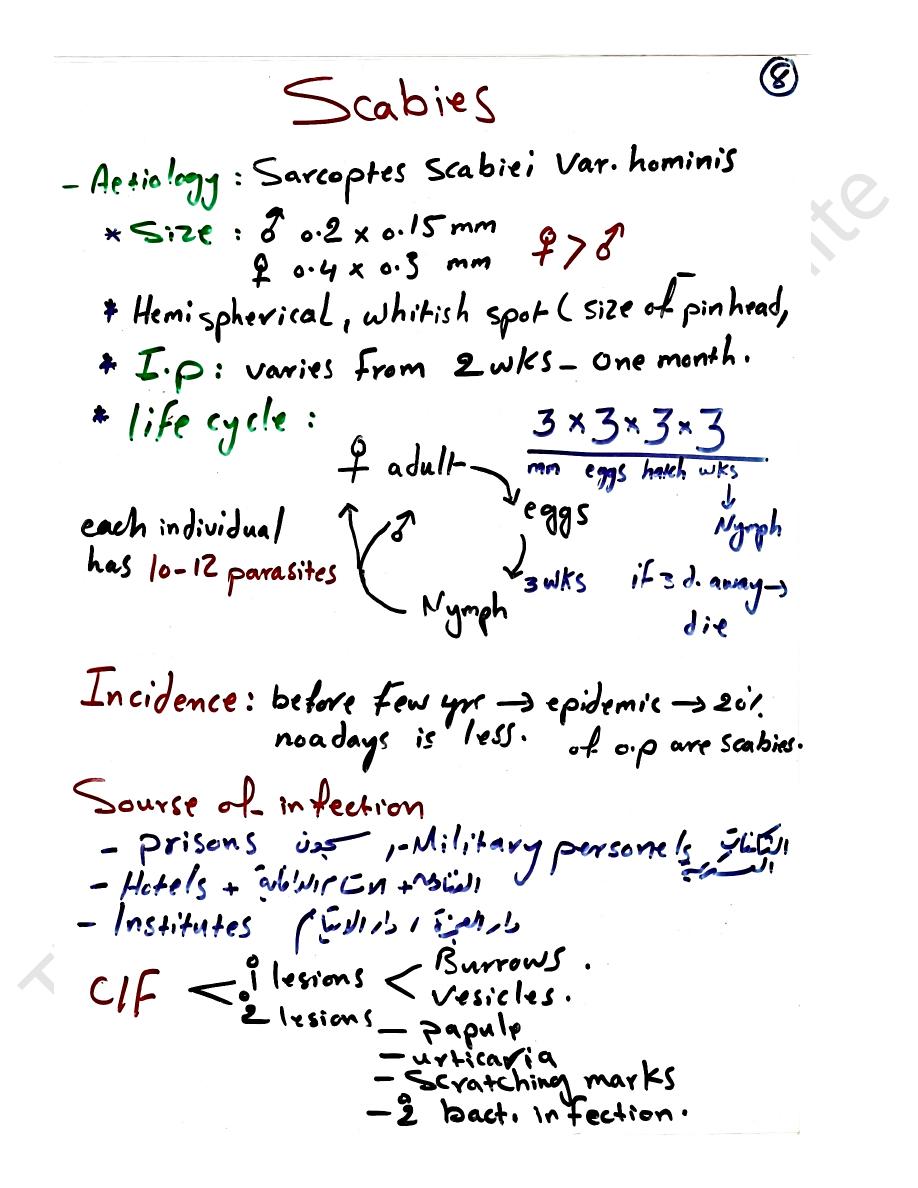 8
Scabies
- Aetiology : Sarcoptes Scabiei Var. hominis
* Size : ♂ 0.2 x 0.15 mm
♀ 0.4 x 0.3 mm
♀ > ♂
* Hemispherical, whitish spot ( size of pinhead,
* I.p : varies from 2 wks - one month.
* life cycle :
3 x 3 x 3 x 3
mm eggs hatch wks
↓
Nymph
♀ adult
eggs
♂
3 wks
Nymph
each individual
has 10-12 parasites
if 3 d. away →
die
Incidence : before few yrs → epidemic → 20%
noadays is less. of o.p are scabies.
Sourse of infection
- prisons سجون ,- Military personels الثكنات
العسكرية
- Hotels + الفنادق +
- Institutes دار العجزة / دار الايتام
C/F < 1° lesions < Burrows .
Vesicles .
2° lesions - papule
- urticaria
- Scratching marks
- 2° bact. infection .
ite
T